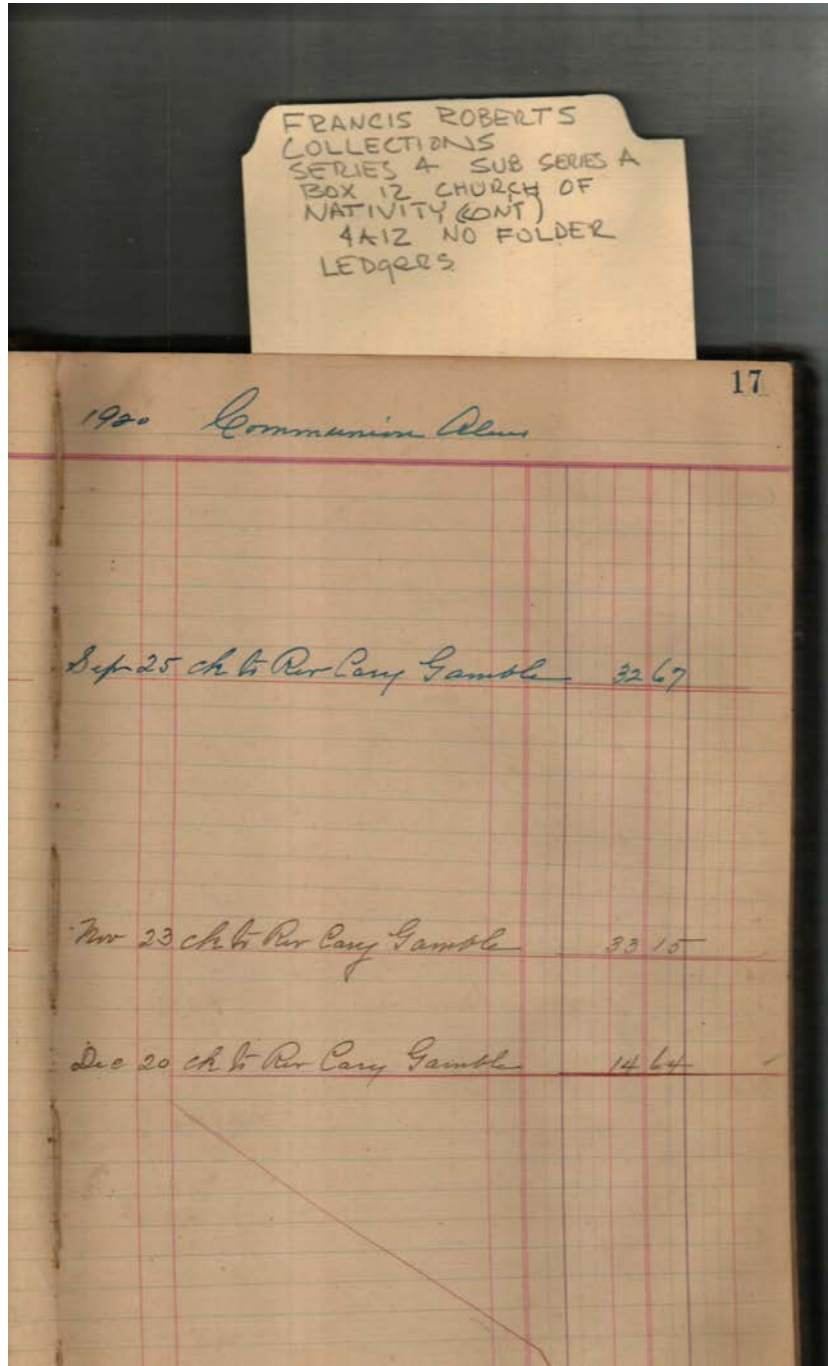 FRANCIS ROBERTS
COLLECTIONS
SERIES 4 SUB SERIES A
BOX 12 CHURCH OF
NATIVITY (CONT)
4A12 NO FOLDER
LEDgeRS
17
1920 Communion Alms
Sep 25 ch to Rev Cary Gamble 32 67
Nov 23 ch to Rev Cary Gamble 33 15
Dec 20 ch to Rev Cary Gamble 14 64